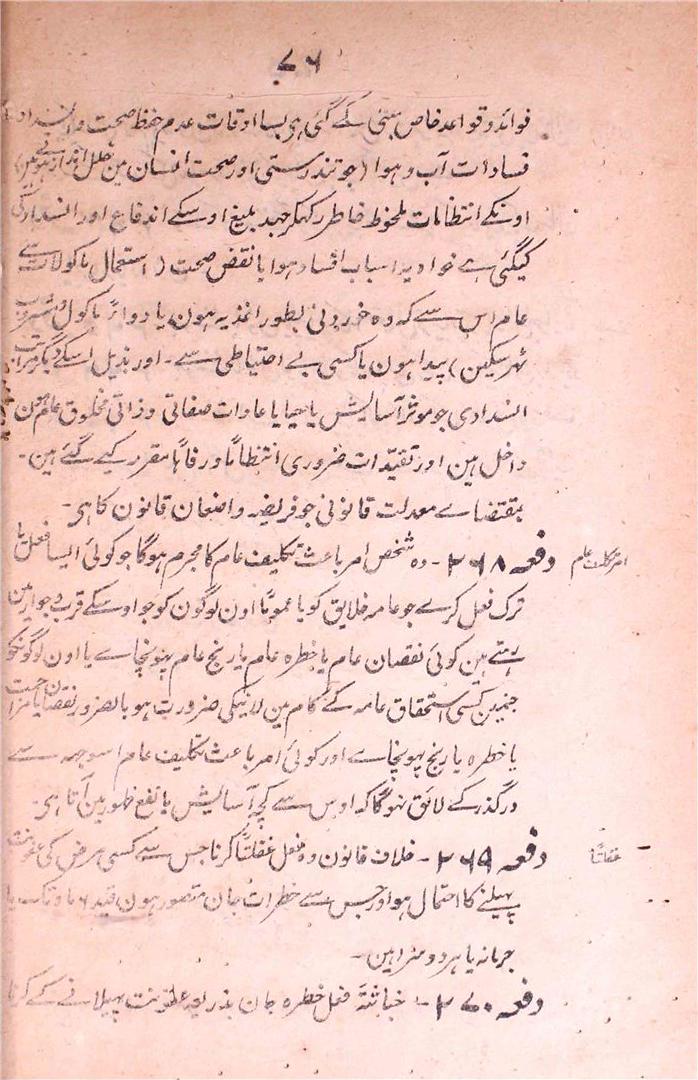 ۷۶
فوائد و قواعد خاص مبنی کے گئی ہی بسا اوقات عدم حفظ صحت و انسداد
فسادات آب و ہوا (جو تندرستی اور صحت انسان مین خلل انداز ہوتے ہین)
اونکے انتظامات ملحوظ خاطر رکھکر جہد بلیغ اوسکے اندفاع اور انسداد کی
کیگئی ہے خواہ یہ اسباب افساد ہوا یا نقض صحت (استعمال ماکولات سے
عام اس سے کہ وہ خوردنی بطور اغذیہ ہون یا دواءً ماکول و مشروب
پیدا ہون یا کسی بے احتیاطی سے۔ اور بذیل اسکے دیگر مراتب
انسدادی جو موثر آسایش یا حیا یا عادات صفاتی و ذاتی مخلوق عام ہون
داخل ہین اور تقیدات ضروری انتظاماً و رفاہاً مقرر کیے گئے ہین۔
بمقتضاے معدلت قانونی جو فریضہ واضعان قانون کا ہی۔
امر تکلیف عام
دفعہ ۲۶۸۔ وہ شخص امر باعث تکلیف عام کا مجرم ہوگا جو کوئی ایسا فعل یا
ترک فعل کرے جو عامہ خلایق کو یا عموماً اون لوگون کو جو اوسکے قرب و جوار مین
رہتے ہین کوئی نقصان عام یا خطرہ عام یا رنج عام پہونچاے یا اون لوگونکو
جنہین کسی استحقاق عامہ کے کام مین لانیکی ضرورت ہو بالضرور نقصان یا مزاحمت
یا خطرہ یا رنج پہونچاے اور کوئی امر باعث تکلیف عام اسوجہہ سے
درگذر کے لائق نہوگا کہ اوس سے کچھ آسایش یا نفع ظہور مین آتا ہی۔
غفلتاً
دفعہ ۲۶۹۔ خلاف قانون وہ فعل غفلتاً کرنا جس سے کسی مرض کی عفونت
پہیلنے کا احتمال ہو اور جس سے خطرات جان متصور ہون قید ۶ ماہ تک یا
جرمانہ یا ہر دو سزا ہین۔
دفعہ ۲۷۰۔ خباثتہً فعل خطرہ جان بذریعہ عفونت پہیلانے کے کرنا